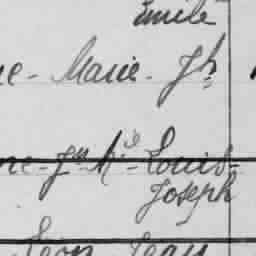 Emile
ne - Marie - Jh
ne - Jn Me - Louis -
Joseph
Léon Jean